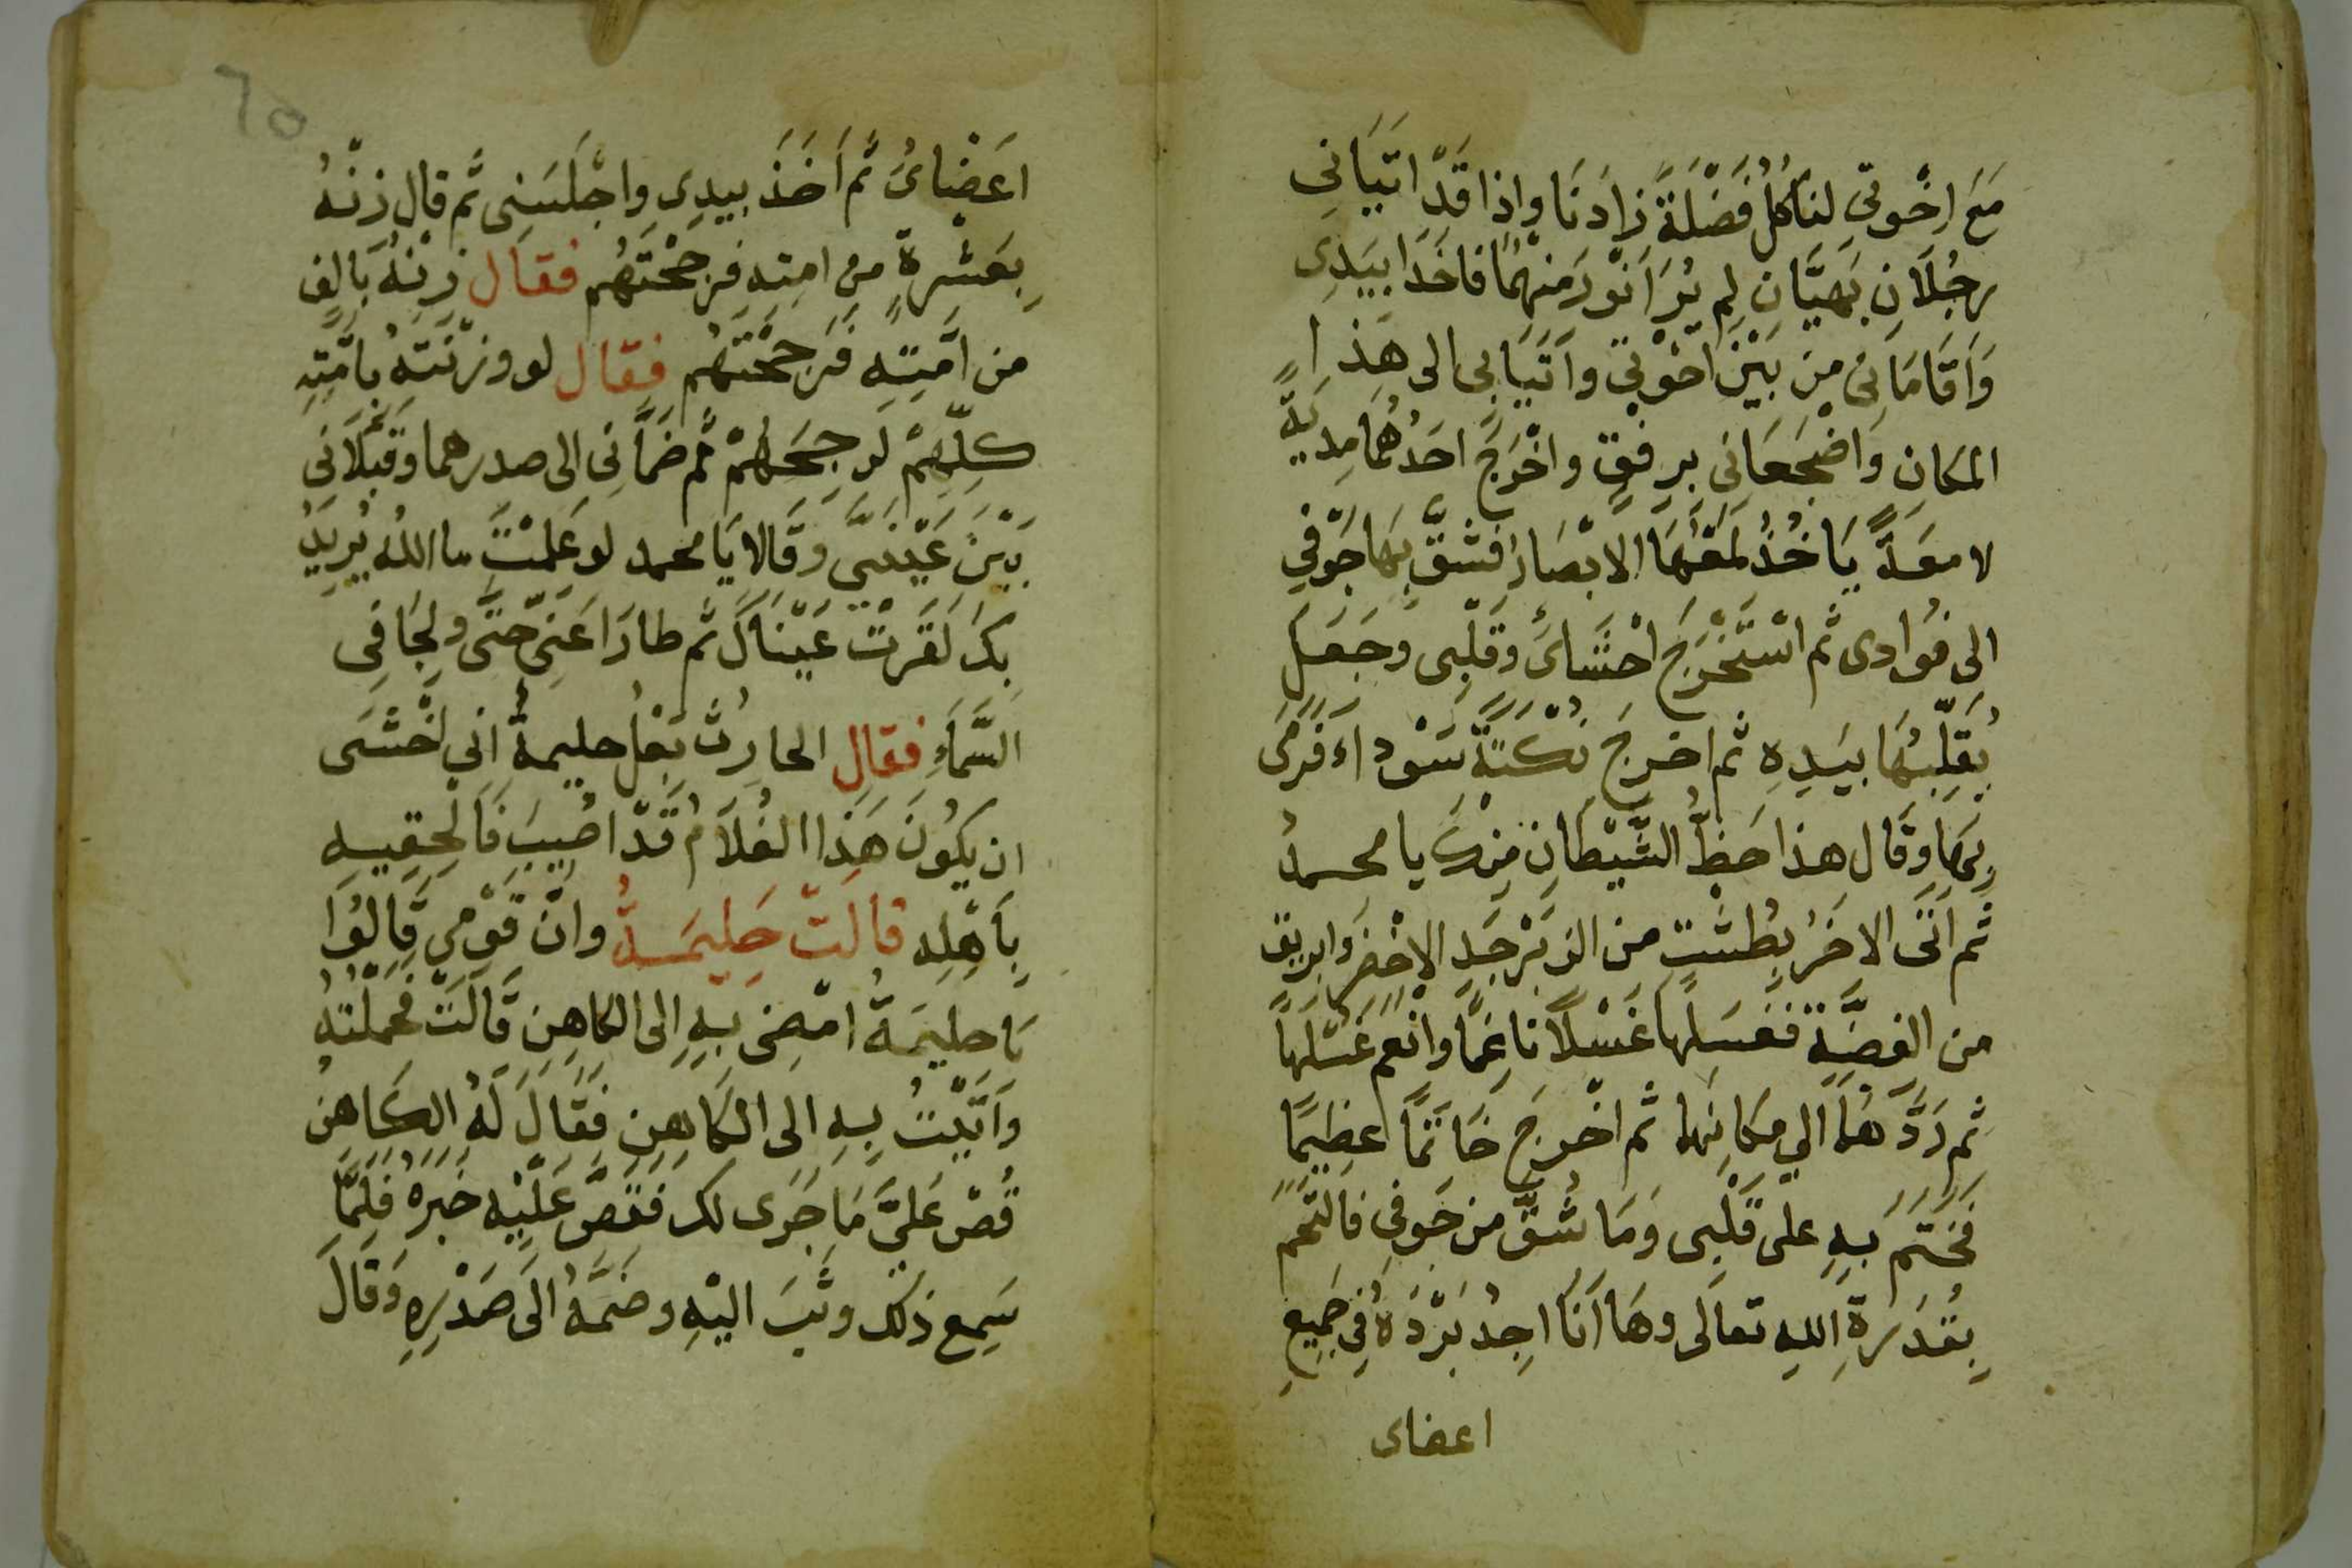 مَعَ اِخْوتِى لنَأكُلُ فَضْلَةَ زادَنَا واِذا قَدْ اتَيَانِى
رجُلَانِ بَهيَّانِ لم يُرَ اَنْوَرَ منهُمَا فاخَذَا بيَدِى
وَاَقَامَانِى مِن بَيْنَ اخْوَتِى واَتَيَابى الى هَذا
المكانِ وَاضْجَعَانى برِفقٍ واخْرَجَ احَدُهُما مِديَةً
لامعَةً يَاخُذُ لمَعَهَا الابْصَارَ فشقَّ بهَا جَوْفِي
الى فُوادى ثم اسْتَخْرَجَ احْشَائَ وَقَلْبِى وجَعَلَ
يُقَلِّبُهَا بيَدِهِ ثم اخرجَ نُكْتَةً سَوْدآءَ فَرَمَى
بِهَا وَقَال هذا حَظُّ الشَّيْطَانِ مِنْكَ يا محمدُ
ثم اَتَى الاخَرُ بطَشْتٍ من الزبَرْجَدِ الاخْضَرِ وابريق
من الفضَّةِ فغسَلهَا غَسْلًا نَاعِمًا وانْعَمَ غَسْلَهَا
ثم رَدَّهَا الي مكانِهَا ثم اخْرجَ خَاتمًا عظِيمًا
فَخَتَمَ بهِ على قَلْبِى وَمَا شُقَّ من جَوفِى فَالتَحَمَ
بِقُدرَةِ اللهِ تعالَى وهَا اَنَا اجِدُ بَرْدَهُ فِى جَمِيعِ
اعضاى
٦٥
اعَضْائىَ ثم اَخَذَ بيدِى واجْلَسَنِى ثم قال زِنْهُ
بِعَشْرةٍ من امتِهِ فرَجَحْتَهُم فقال زِنْهُ بَالفٍ
من امَّتِهِ فَرَجَحْتَهُم فقال لو وزَنْتَهُ بامَّتِهِ
كلِّهِمْ لرَجَحَهُمْ ثم ضمَّانِى الى صدرهما وقبَّلَانِى
بَيْنَ عَيْنَيَّ وقَالا يَا محمد لو عَلِمْتَ ما اللهُ يُرِيدُ
بِكَ لقَرَتْ عَيْنَاكَ ثم طارَا عَنِّى حتَّى ولجَا فِى
السَّمَاءِ فقال الحارثُ بَعْلُ حليمةُ اني اخْشَى
ان يكُونَ هَذا الغُلَامُ قَدْ اصُيبَ فَالْحِقِيهِ
بِاَهْلِه قالتْ حَلِيمَةُ وانَّ قَوْمِي قَالُوا
يَا حلِيمَةُ امْضِى بهِ اِلى الكاهِنِ قَالَتْ فحملْتهُ
واَتَيْتُ بهِ الى الكاهِنِ فَقَالَ لَهُ الكَاهِنُ
قُصْ عَلَيَّ مَا جَرَى لك فَقَصَّ عَلَيْهِ خَبَرَهُ فلَمَّا
سَمِعَ ذلكَ وثَبَ اليْهِ وضَمَّهُ الَى صَدْرِهِ وَقَالَ